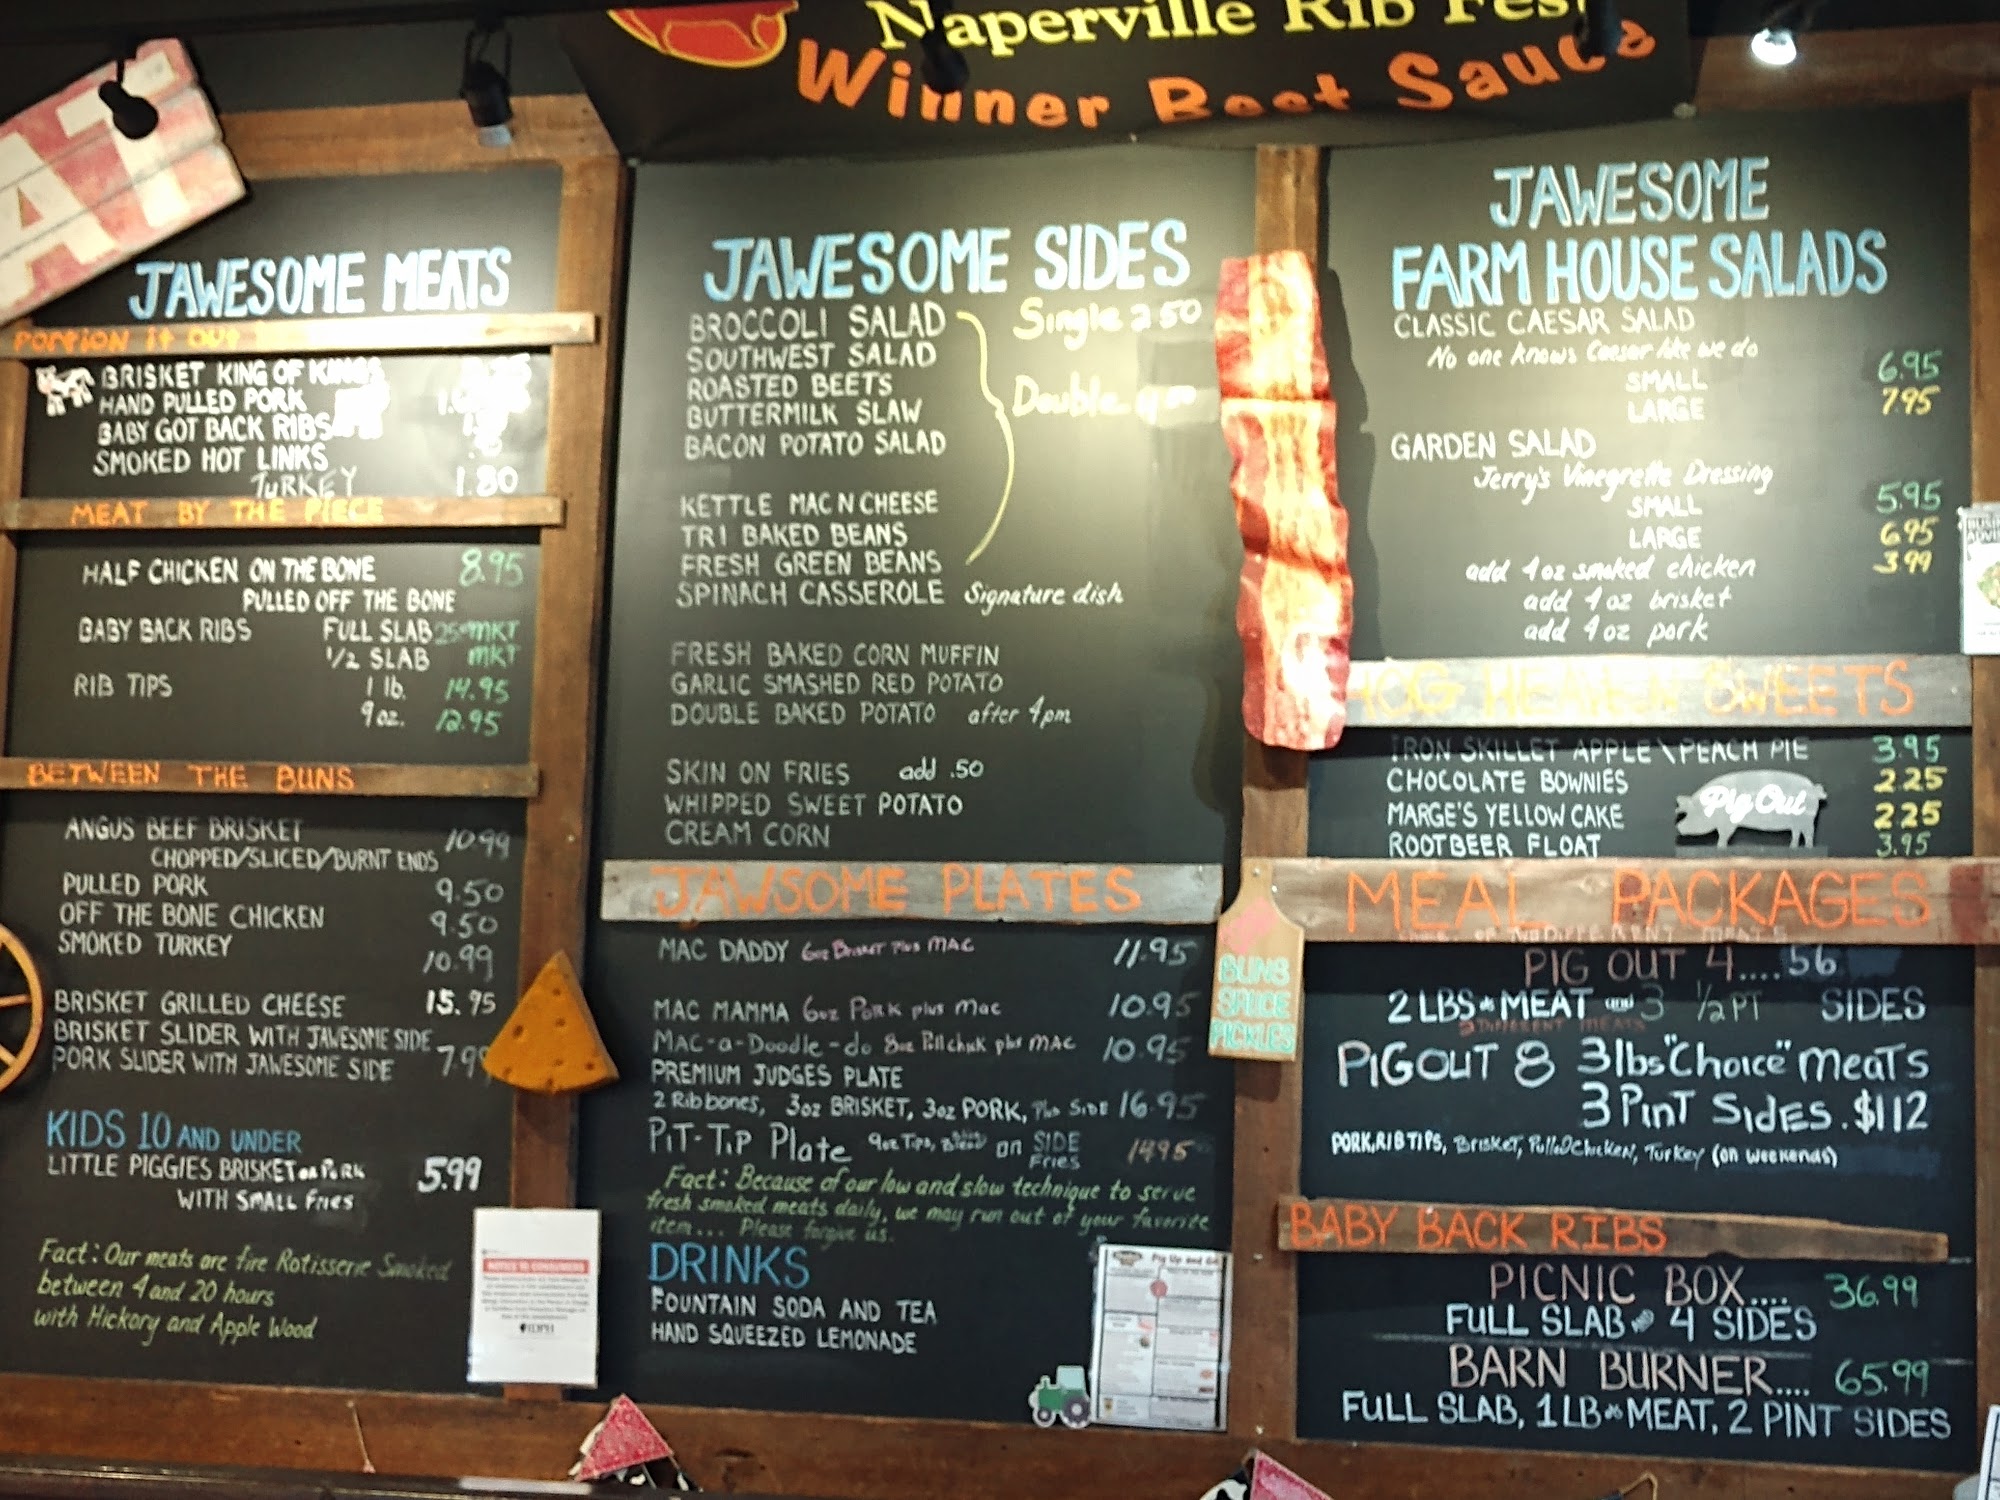 Naperville Rib Fest
Winner Best Sauce
AT
JAWESOME MEATS
PORTION it OUT
BRISKET KING OF KINGS
HAND PULLED PORK
BABY GOT BACK RIBS
SMOKED HOT LINKS
TURKEY 1.80
MEAT BY THE PIECE
HALF CHICKEN ON THE BONE 8.95
PULLED OFF THE BONE
BABY BACK RIBS FULL SLAB MKT
1/2 SLAB MKT
RIB TIPS 1 lb. 14.95
9 oz. 12.95
BETWEEN THE BUNS
ANGUS BEEF BRISKET 10.99
CHOPPED/SLICED/BURNT ENDS
PULLED PORK 9.50
OFF THE BONE CHICKEN 9.50
SMOKED TURKEY 10.99
BRISKET GRILLED CHEESE 15.95
BRISKET SLIDER WITH JAWESOME SIDE
PORK SLIDER WITH JAWESOME SIDE 7.99
KIDS 10 AND UNDER
LITTLE PIGGIES BRISKET OR PORK 5.99
WITH SMALL FRIES
Fact: Our meats are fire Rotisserie Smoked
between 4 and 20 hours
with Hickory and Apple Wood
NOTICE TO CONSUMERS
JAWESOME SIDES
BROCCOLI SALAD Single 2.50
SOUTHWEST SALAD
ROASTED BEETS Double
BUTTERMILK SLAW
BACON POTATO SALAD
KETTLE MAC N CHEESE
TRI BAKED BEANS
FRESH GREEN BEANS
SPINACH CASSEROLE Signature dish
FRESH BAKED CORN MUFFIN
GARLIC SMASHED RED POTATO
DOUBLE BAKED POTATO after 4pm
SKIN ON FRIES add .50
WHIPPED SWEET POTATO
CREAM CORN
JAWSOME PLATES
MAC DADDY 6oz Brisket Plus MAC 11.95
MAC MAMMA 6oz Pork plus Mac 10.95
MAC-a-Doodle-do 8oz Pull chick plus MAC 10.95
PREMIUM JUDGES PLATE
2 Rib bones, 3oz BRISKET, 3oz PORK, Plus SIDE 16.95
PiT-TiP Plate 9oz Tips, on SIDE 14.95
Fries
Fact: Because of our low and slow technique to serve
fresh smoked meats daily, we may run out of your favorite
item.... Please forgive us.
DRINKS
FOUNTAIN SODA AND TEA
HAND SQUEEZED LEMONADE
Pig Up and Go
BUNS
SAUCE
PICKLES
JAWESOME
FARM HOUSE SALADS
CLASSIC CAESAR SALAD
No one knows Caesar like we do
SMALL 6.95
LARGE 7.95
GARDEN SALAD
Jerry's Vinegrette Dressing
SMALL 5.95
LARGE 6.95
add 4 oz smoked chicken 3.99
add 4 oz brisket
add 4 oz pork
HOG HEAVEN SWEETS
IRON SKILLET APPLE \ PEACH PIE 3.95
CHOCOLATE BOWNIES 2.25
MARGE'S YELLOW CAKE 2.25
ROOTBEER FLOAT 3.95
Pig Out
MEAL PACKAGES
PIG OUT 4....56
2 LBS of MEAT and 3 1/2 PT SIDES
2 DIFFERENT MEATS
PIGOUT 8 3lbs "Choice" meats
3 PinT SiDES. $112
PORK, RIB TIPS, Brisket, Pulled Chicken, Turkey (on weekends)
BABY BACK RIBS
PICNIC BOX.... 36.99
FULL SLAB AND 4 SIDES
BARN BURNER.... 65.99
FULL SLAB, 1 LB of MEAT, 2 PINT SIDES